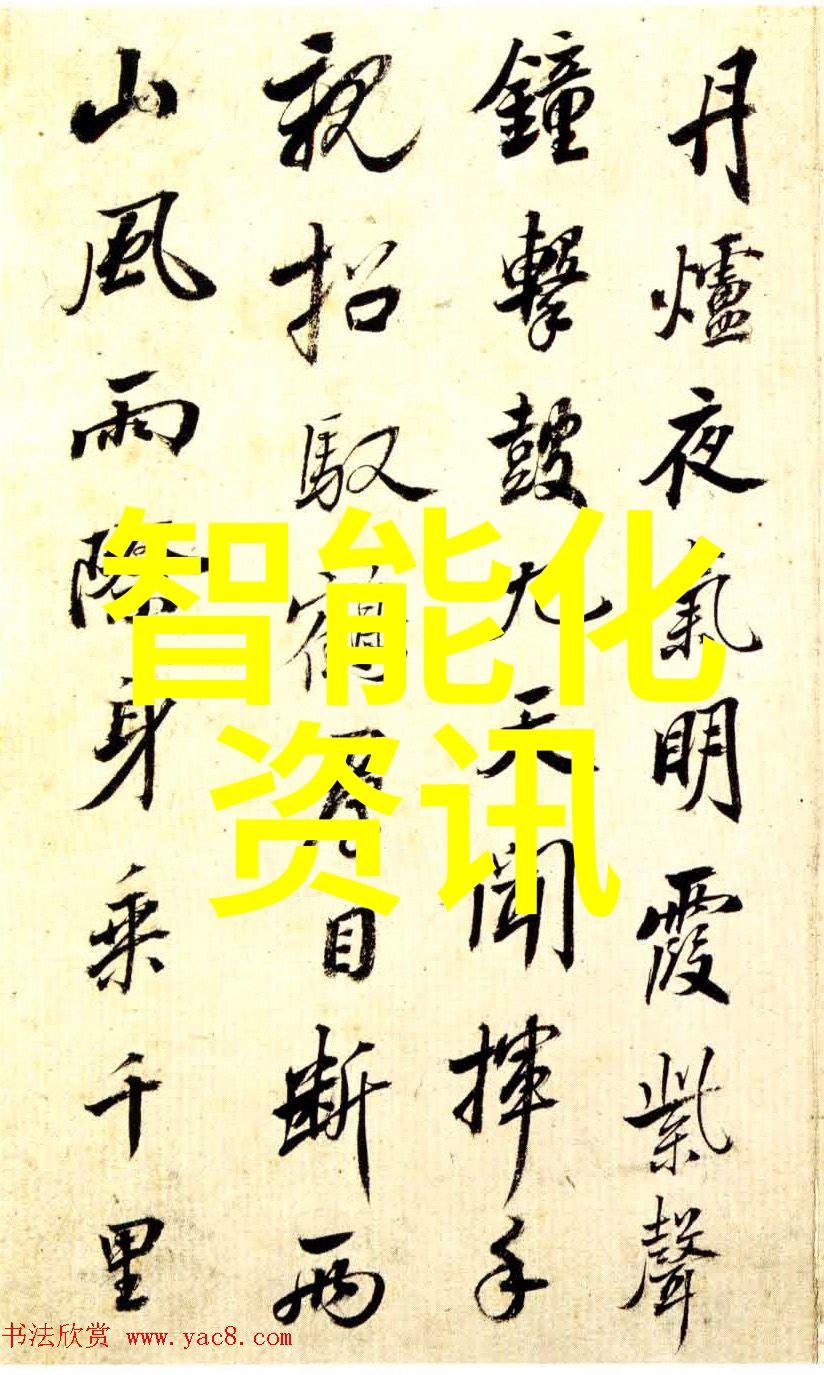 丹爐夜氣明霞紫聲
鐘擊鼓九天聞揮手
親招馭鶴 目斷兩
山風雨隨身乘千里
智能化
资讯
书法欣赏 www.yac8.com